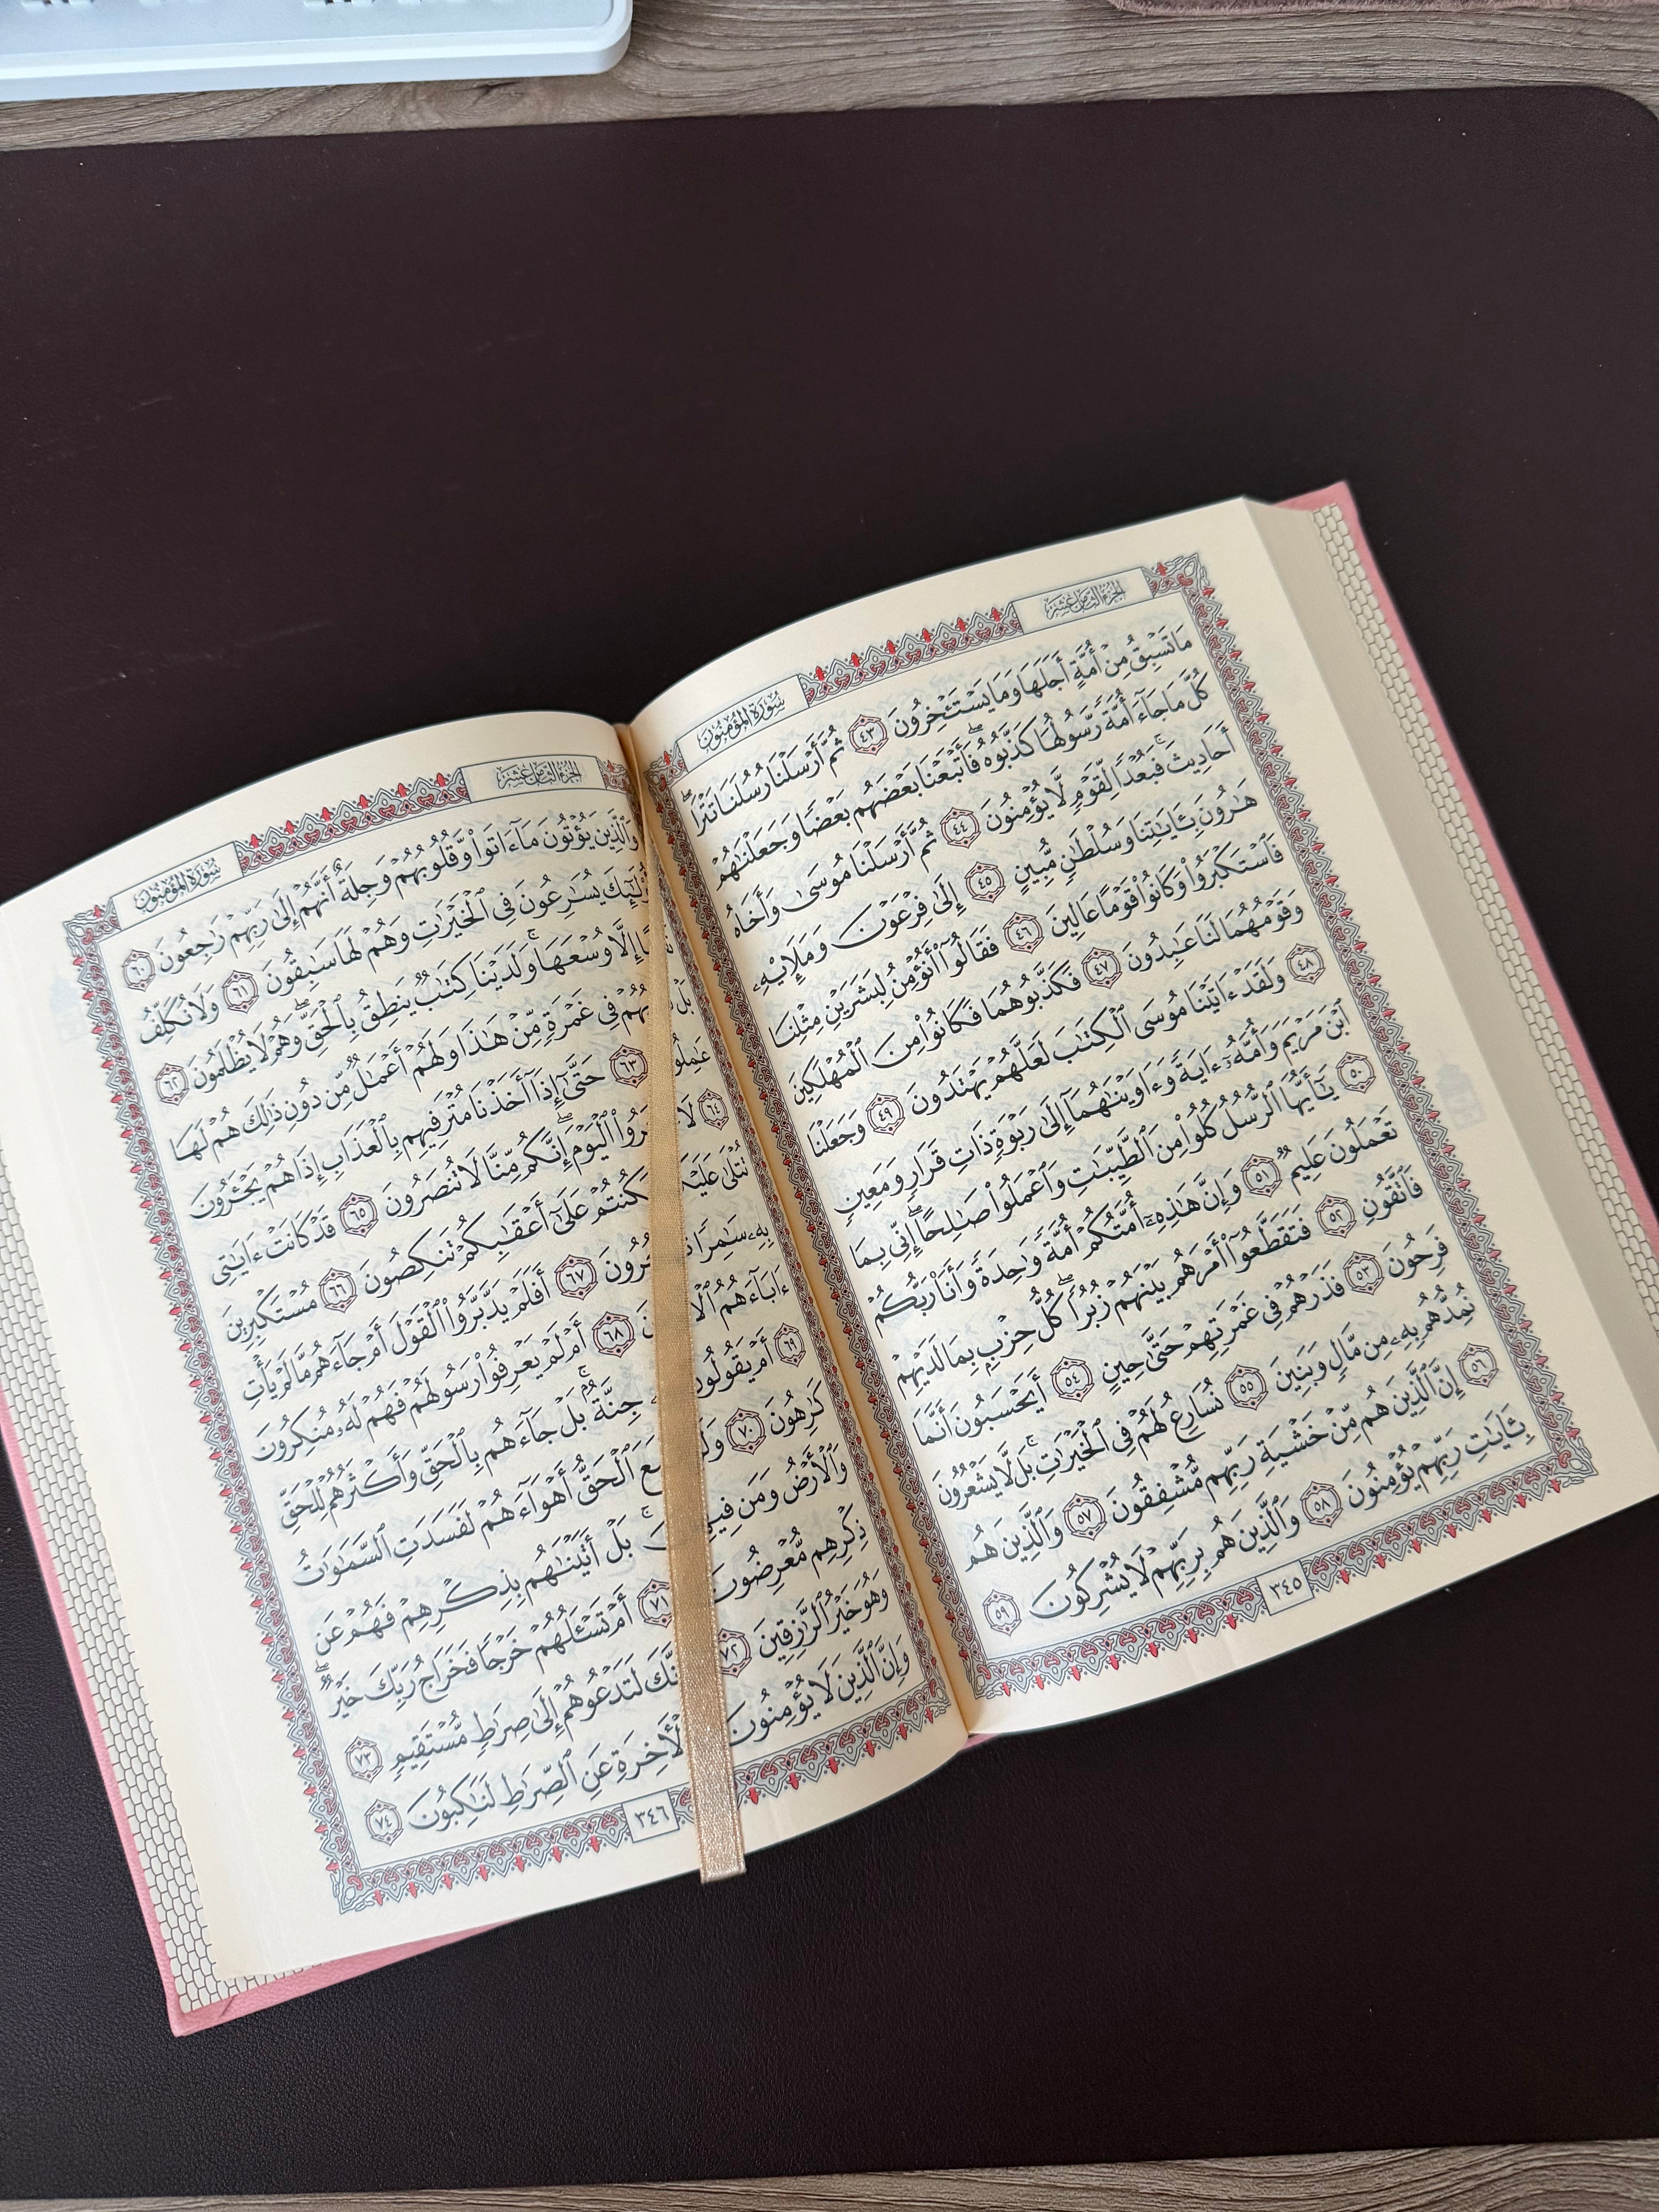 الجزء الثامن عشر
سورة المؤمنون
مَا تَسْبِقُ مِنْ أُمَّةٍ أَجَلَهَا وَمَا يَسْتَـْٔخِرُونَ ٤٣ ثُمَّ أَرْسَلْنَا رُسُلَنَا تَتْرَاۖ
كُلَّ مَا جَآءَ أُمَّةً رَّسُولُهَا كَذَّبُوهُۖ فَأَتْبَعْنَا بَعْضَهُم بَعْضًا وَجَعَلْنَٰهُمْ
أَحَادِيثَۚ فَبُعْدًا لِّقَوْمٍ لَّا يُؤْمِنُونَ ٤٤ ثُمَّ أَرْسَلْنَا مُوسَىٰ وَأَخَاهُ
هَٰرُونَ بِـَٔايَٰتِنَا وَسُلْطَٰنٍ مُّبِينٍ ٤٥ إِلَىٰ فِرْعَوْنَ وَمَلَإِي۟هِۦ
فَٱسْتَكْبَرُوا۟ وَكَانُوا۟ قَوْمًا عَالِينَ ٤٦ فَقَالُوٓا۟ أَنُؤْمِنُ لِبَشَرَيْنِ مِثْلِنَا
وَقَوْمُهُمَا لَنَا عَٰبِدُونَ ٤٧ فَكَذَّبُوهُمَا فَكَانُوا۟ مِنَ ٱلْمُهْلَكِينَ
٤٨ وَلَقَدْ ءَاتَيْنَا مُوسَى ٱلْكِتَٰبَ لَعَلَّهُمْ يَهْتَدُونَ ٤٩ وَجَعَلْنَا
ٱبْنَ مَرْيَمَ وَأُمَّهُۥٓ ءَايَةً وَءَاوَيْنَٰهُمَآ إِلَىٰ رَبْوَةٍ ذَاتِ قَرَارٍ وَمَعِينٍ
٥٠ يَٰٓأَيُّهَا ٱلرُّسُلُ كُلُوا۟ مِنَ ٱلطَّيِّبَٰتِ وَٱعْمَلُوا۟ صَٰلِحًاۖ إِنِّى بِمَا
تَعْمَلُونَ عَلِيمٌ ٥١ وَإِنَّ هَٰذِهِۦٓ أُمَّتُكُمْ أُمَّةً وَٰحِدَةً وَأَنَا۠ رَبُّكُمْ
فَٱتَّقُونِ ٥٢ فَتَقَطَّعُوٓا۟ أَمْرَهُم بَيْنَهُمْ زُبُرًاۖ كُلُّ حِزْبٍۭ بِمَا لَدَيْهِمْ
فَرِحُونَ ٥٣ فَذَرْهُمْ فِى غَمْرَتِهِمْ حَتَّىٰ حِينٍ ٥٤ أَيَحْسَبُونَ أَنَّمَا
نُمِدُّهُم بِهِۦ مِن مَّالٍ وَبَنِينَ ٥٥ نُسَارِعُ لَهُمْ فِى ٱلْخَيْرَٰتِۚ بَل لَّا يَشْعُرُونَ
٥٦ إِنَّ ٱلَّذِينَ هُم مِّنْ خَشْيَةِ رَبِّهِم مُّشْفِقُونَ ٥٧ وَٱلَّذِينَ هُم
بِـَٔايَٰتِ رَبِّهِمْ يُؤْمِنُونَ ٥٨ وَٱلَّذِينَ هُم بِرَبِّهِمْ لَا يُشْرِكُونَ ٥٩
٣٤٥
الجزء الثامن عشر
سورة المؤمنون
وَٱلَّذِينَ يُؤْتُونَ مَآ ءَاتَوا۟ وَّقُلُوبُهُمْ وَجِلَةٌ أَنَّهُمْ إِلَىٰ رَبِّهِمْ رَٰجِعُونَ ٦٠
أُو۟لَٰٓئِكَ يُسَٰرِعُونَ فِى ٱلْخَيْرَٰتِ وَهُمْ لَهَا سَٰبِقُونَ ٦١ وَلَا نُكَلِّفُ
إِلَّا وُسْعَهَاۖ وَلَدَيْنَا كِتَٰبٌ يَنطِقُ بِٱلْحَقِّ وَهُمْ لَا يُظْلَمُونَ ٦٢
بَلْ فِى غَمْرَةٍ مِّنْ هَٰذَا وَلَهُمْ أَعْمَٰلٌ مِّن دُونِ ذَٰلِكَ هُمْ لَهَا
٦٣ حَتَّىٰٓ إِذَآ أَخَذْنَا مُتْرَفِيهِم بِٱلْعَذَابِ إِذَا هُمْ يَجْـَٔرُونَ
٦٤ لَا ٱلْيَوْمَۖ إِنَّكُم مِّنَّا لَا تُنصَرُونَ ٦٥ قَدْ كَانَتْ ءَايَٰتِى
تُتْلَىٰ عَلَيْكُمْ فَكُنتُمْ عَلَىٰٓ أَعْقَٰبِكُمْ تَنكِصُونَ ٦٦ مُسْتَكْبِرِينَ
بِهِۦ سَٰمِرًا ٦٧ أَفَلَمْ يَدَّبَّرُوا۟ ٱلْقَوْلَ أَمْ جَآءَهُم مَّا لَمْ يَأْتِ
ءَابَآءَهُمُ ٦٨ أَمْ لَمْ يَعْرِفُوا۟ رَسُولَهُمْ فَهُمْ لَهُۥ مُنكِرُونَ
٦٩ أَمْ يَقُولُونَ جِنَّةٌۢۚ بَلْ جَآءَهُم بِٱلْحَقِّ وَأَكْثَرُهُمْ لِلْحَقِّ
كَٰرِهُونَ ٧٠ وَلَوِ ٱلْحَقُّ أَهْوَآءَهُمْ لَفَسَدَتِ ٱلسَّمَٰوَٰتُ
وَٱلْأَرْضُ وَمَن فِيهِنَّۚ بَلْ أَتَيْنَٰهُم بِذِكْرِهِمْ فَهُمْ عَن
ذِكْرِهِم مُّعْرِضُونَ ٧١ أَمْ تَسْـَٔلُهُمْ خَرْجًا فَخَرَاجُ رَبِّكَ خَيْرٌۖ
وَهُوَ خَيْرُ ٱلرَّٰزِقِينَ ٧٢ لَتَدْعُوهُمْ إِلَىٰ صِرَٰطٍ مُّسْتَقِيمٍ ٧٣
وَإِنَّ ٱلَّذِينَ لَا يُؤْمِنُونَ عَنِ ٱلصِّرَٰطِ لَنَٰكِبُونَ ٧٤
٣٤٦